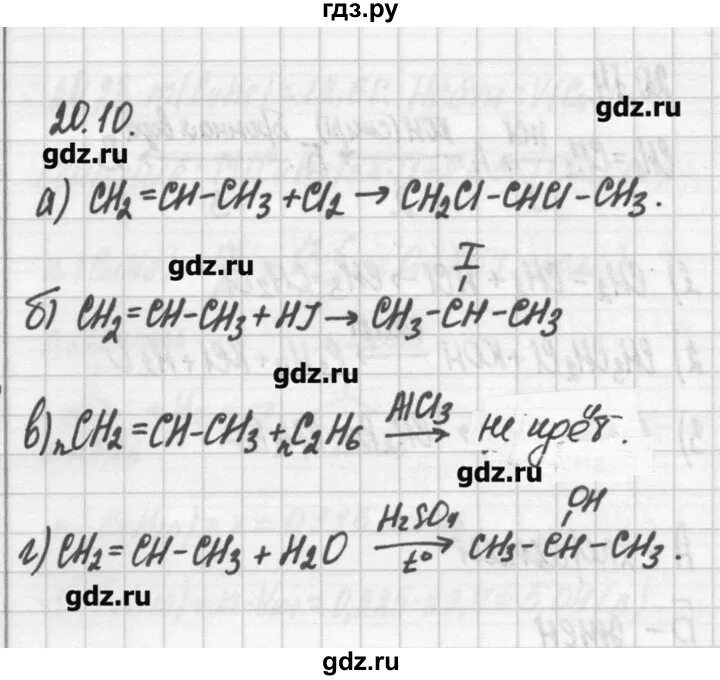 гдз.ру
20.10.
gdz.ru
gdz.ru
а) CH2=CH-CH3 +Cl2 → CH2Cl-CHCl-CH3.
gdz.ru
I
б) CH2=CH-CH3 + HJ → CH3-CH-CH3
gdz.ru
в) nCH2=CH-CH3 + nC2H6 AlCl3 → не идёт.
gdz.ru
OH
г) CH2=CH-CH3 + H2O H2SO4 t° → CH3-CH-CH3.
gdz.ru
gdz.ru